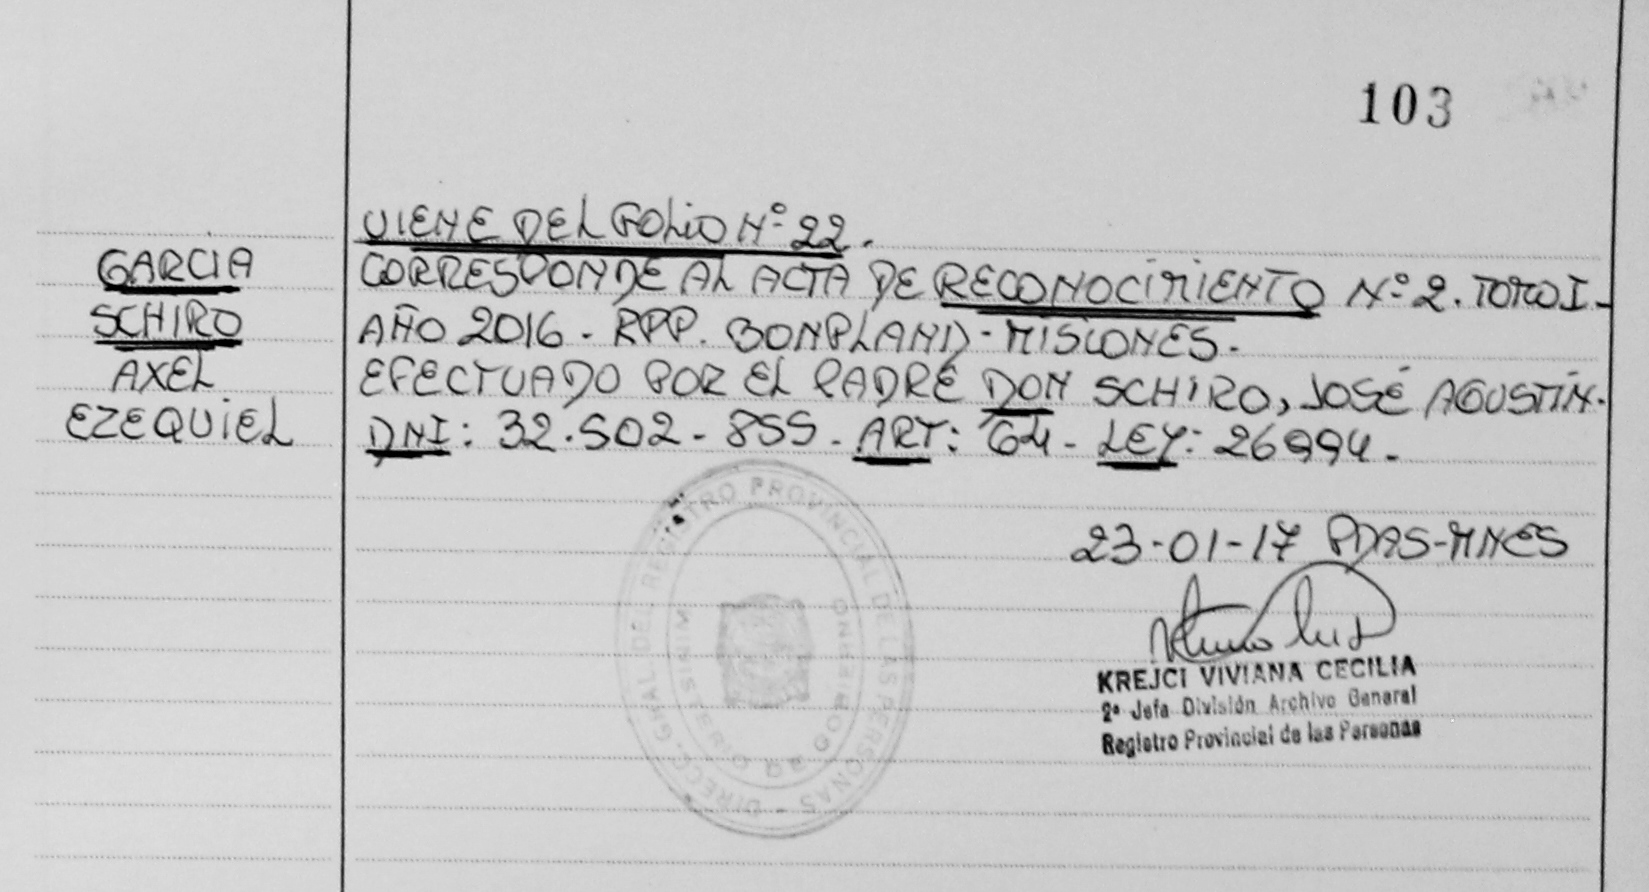 103
VIENE DEL FOLIO Nº 22.
GARCIA
SCHIRO
AXEL
EZEQUIEL
CORRESPONDE AL ACTA DE RECONOCIMIENTO Nº 2. TOMO I-
AÑO 2016 - RPP. BONPLAND - MISIONES.
EFECTUADO POR EL PADRE DON SCHIRO, JOSÉ AGUSTÍN.
DNI: 32.502-855- ART: 64- LEY: 26994-
23-01-17 PDAS-MNES
KREJCI VIVIANA CECILIA
2ª Jefa División Archivo General
Registro Provincial de las Personas
DIRECC. GRAL DEL REGISTRO PROVINCIAL DE LAS PERSONAS -
MINISTERIO DE GOBIERNO